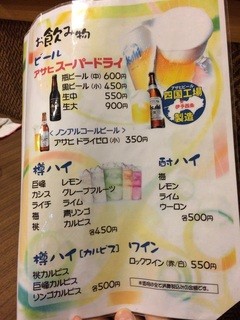 お飲み物
ビール
アサヒスーパードライ
瓶ビール(中) 600円
黒ビール(小) 450円
生中 550円
生大 900円
アサヒビール
四国工場
伊予西条
製造
<ノンアルコールビール>
アサヒドライゼロ(小) 350円
樽ハイ
巨峰 レモン
カシス グレープフルーツ
ライチ ライム
梅 青リンゴ
桃 カルピス
各450円
酎ハイ
梅
レモン
ライム
ウーロン
各500円
樽ハイ(カルピス)
桃カルピス
巨峰カルピス
リンゴカルピス 各500円
ワイン
ロックワイン(赤/白) 550円